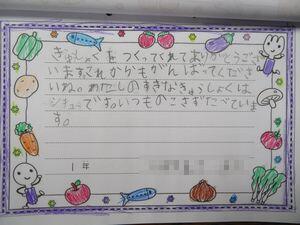 きゅうしょくをつくってくれてありがとうござ
います。これからもがんばってくださ
いね。わたしのすきなきゅうしょくは、
シチューです。いつものこさずたべていま
す。
1年